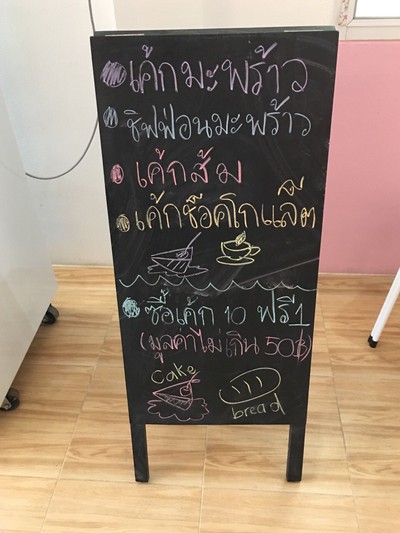 เค้กมะพร้าว
ชิฟฟ่อนมะพร้าว
เค้กส้ม
เค้กช็อคโกแล็ต
ซื้อเค้ก 10 ฟรี 1
(มูลค่าไม่เกิน 50฿)
Cake
bread